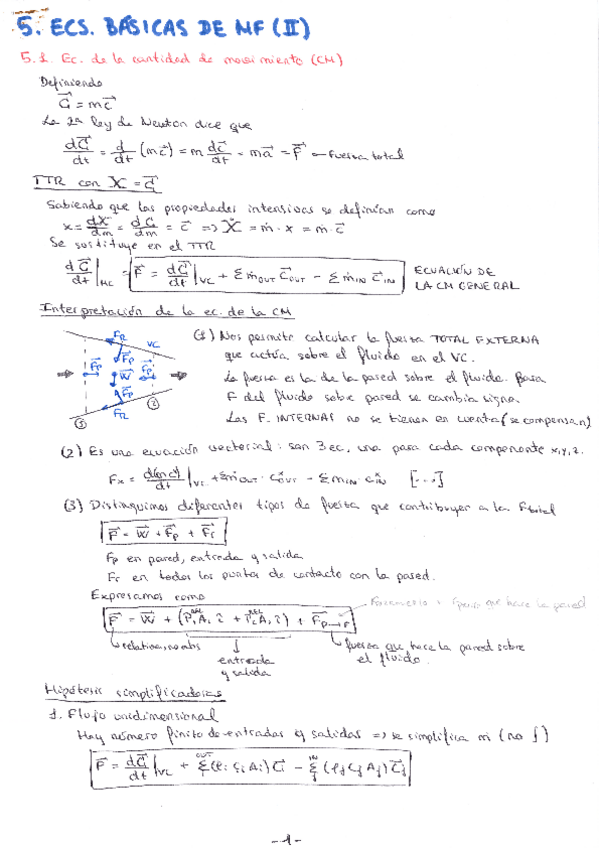 5. ECS. BÁSICAS DE MF (II)
5.1. Ec. de la cantidad de movimiento (CM)
Definiendo
G⃗ = mc⃗
La 2ª ley de Newton dice que
dG⃗/dt = d/dt (mc⃗) = m dc⃗/dt = ma⃗ = F⃗ → Fuerza total
TTR con X = G⃗
Sabiendo que las propiedades intensivas se definían como
x = dX/dm = dG⃗/dm = c⃗ => Ẋ = ṁ · x = ṁ · c⃗
Se sustituye en el TTR
dG⃗/dt|MC = F⃗ = dG⃗/dt|VC + Σ ṁOUT c⃗OUT − Σ ṁIN c⃗IN
ECUACIÓN DE
LA CM GENERAL
Interpretación de la ec. de la CM
FR
VC
Fp
Fp
W
Fp
Fp
FR
1
2
(1) Nos permite calcular la fuerza TOTAL EXTERNA
que actúa sobre el fluido en el VC.
La fuerza es la de la pared sobre el fluido. Para
F del fluido sobre pared se cambia signo.
Las F. INTERNAS no se tienen en cuenta (se compensan)
(2) Es una ecuación vectorial: son 3 ec, una para cada componente x, y, z.
Fx = d(mc)/dt|VC + Σ ṁOUT · cxOUT − Σ ṁIN cxIN [...]
(3) Distinguimos diferentes tipos de fuerza que contribuyen a la Ftotal
F⃗ = W⃗ + F⃗p + F⃗r
Fp en pared, entrada y salida
Fr en todos los puntos de contacto con la pared.
Expresamos como
F⃗ = W⃗ + (P₁ᴿᴱᴸA₁ + P₂ᴿᴱᴸA₂) + F⃗p→F
que hace la pared
relativa, no abs
entrada
y salida
fuerza que hace la pared sobre
el fluido.
Hipótesis simplificadoras
1. Flujo unidimensional
Hay número finito de entradas y salidas => se simplifica ṁ (no ∫)
F⃗ = dG⃗/dt|VC + Σᵢ OUT (ρᵢ cᵢ Aᵢ) c⃗ᵢ − Σⱼ IN (ρⱼ cⱼ Aⱼ) c⃗ⱼ
-1-